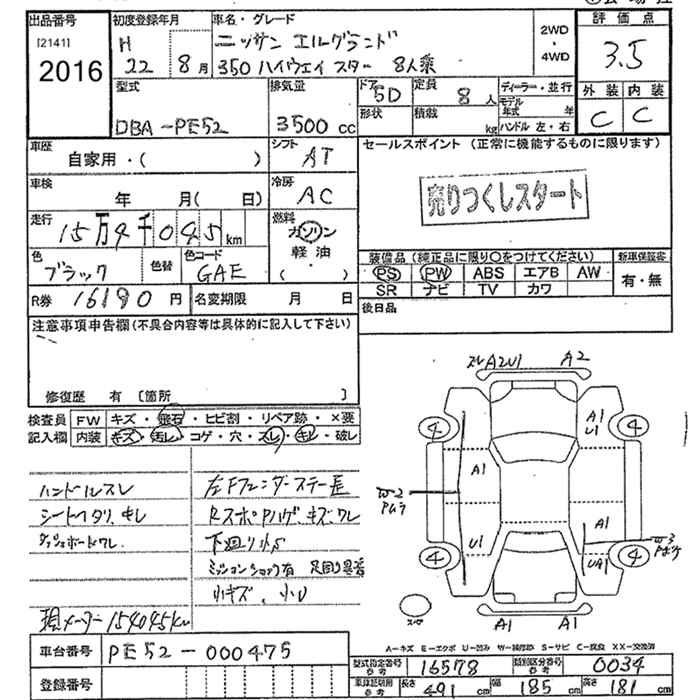 出品番号 初度登録年月 車名・グレード 評価点
[2141] H ニッサン エルグランド 2WD
2016 22 8月 350 ハイウェイスター 8人乗 4WD 3.5
型式 排気量 ドア 5D 定員 8人 ディーラー・並行 外装 内装
DBA-PE52 3500cc 形状 積載 kg モデル年式 年 ハンドル 左・右 C C
車歴 自家用・( ) シフト AT セールスポイント (正常に機能するものに限ります)
車検 年 月( 日) 冷房 AC 売りつくしスタート
走行 15万4千045km 燃料 ガソリン 軽油 ( )
色 ブラック 色替 色コード GAE 装備品(純正品に限り○をつけてください) 新車保証書
PS PW ABS エアB AW 有・無
SR ナビ TV カワ
R券 16180円 名変期限 月 日 後日品
注意事項申告欄(不具合内容等は具体的に記入して下さい)
修復歴 有 [箇所 ]
検査員 FW キズ・飛石・ヒビ割・リペア跡・×要
記入欄 内装 キズ・汚レ・コゲ・穴・スレ・キレ・破レ
ハンドルスレ
シートヘタリ、キレ
ダッシュボードワレ
現メーター154045km
左Fフェンダーステー歪
RスポPハゲ、キズ、ワレ
下廻りサビ
ミッションショック有 足回り異音
小キズ、小U
スレA2U1 A2
④ A1 U1 ④
A1
W2 Pムラ
A1
U1 W3 Pボケ
④ UA1 ④
スペア A1 A1
A－キズ E－エクボ U－凹み W－補修跡 S－サビ C－腐食 XX－交換済
車台番号 PE52-000475
登録番号
型式指定番号参考 16578 類別区分番号参考 0034
車検証明用参考 長さ 491cm 幅 185cm 高さ 181cm